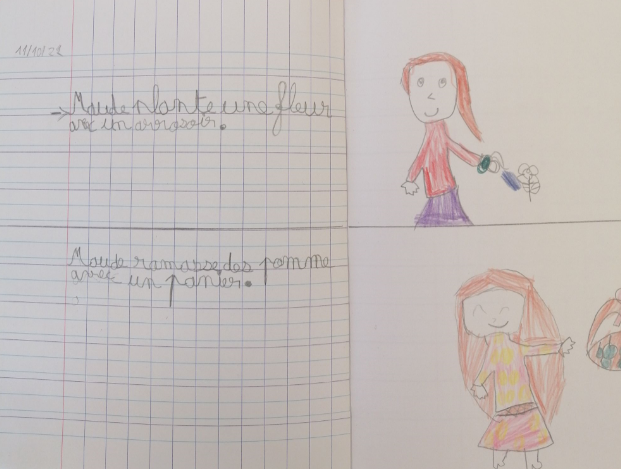 11/10/21
→ Maude plante une fleur
avec un arrosoir.
Maude ramasse des pomme
avec un panier.